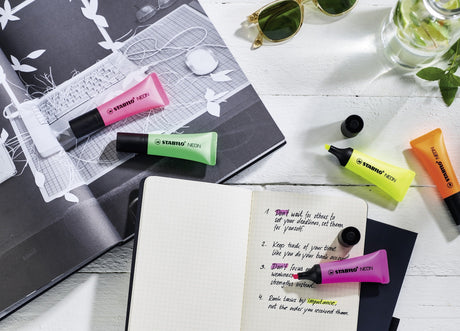 STABILO NEON
STABILO NEON
STABILO NEON
STABILO NEON
1. Don't wait for others to
set your deadlines, set them
for yourself.
2. Keep track of your time
like you do your bank account.
3. Don't focus
strengths instead.
STABILO NEON
4. Rank tasks by importance,
not the order you received them.